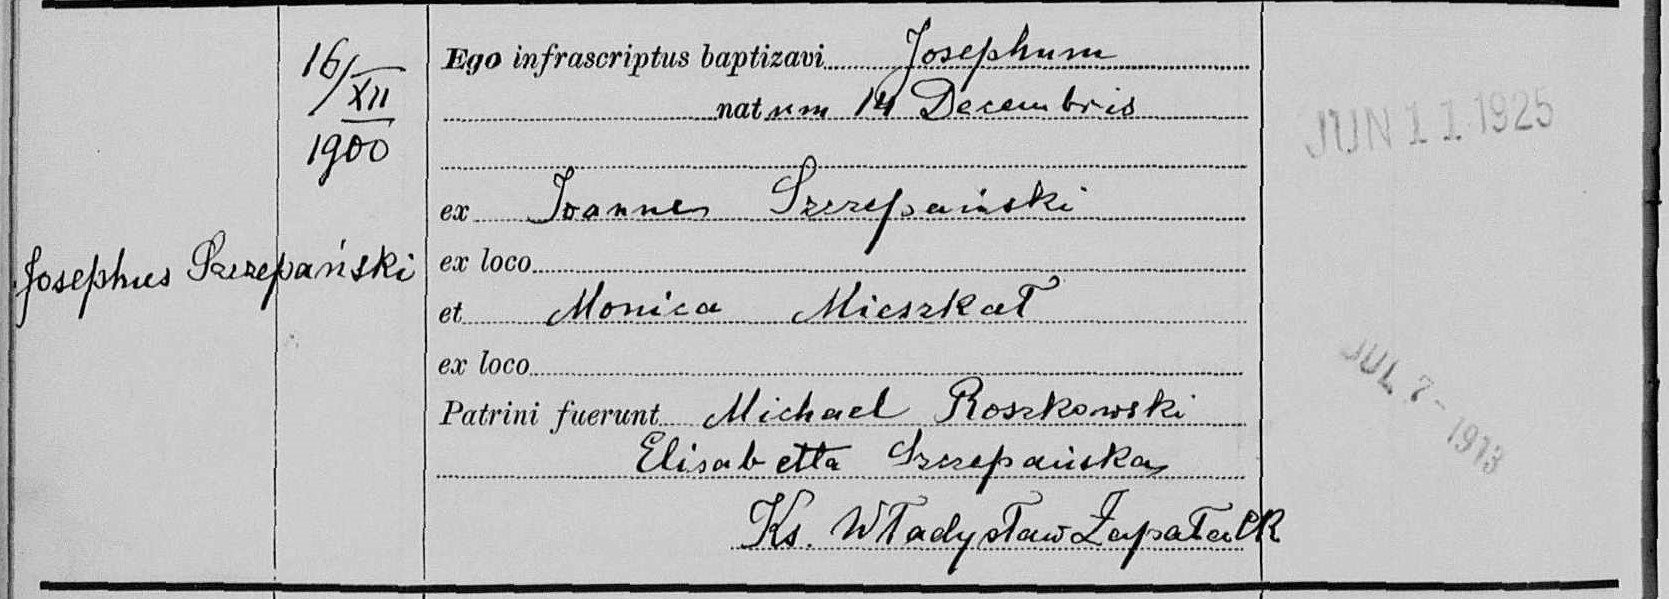 16/XII
1900
Josephus Szczepański
Ego infrascriptus baptizavi Josephum
natum 14 Decembris
ex Joannes Szczepański
ex loco
et Monica Mieszkał
ex loco
Patrini fuerunt Michael Roszkowski
Elisabetta Szczepańska
Ks. Władysław Zapała CR
JUN 11 1925
JUL 7 - 1913